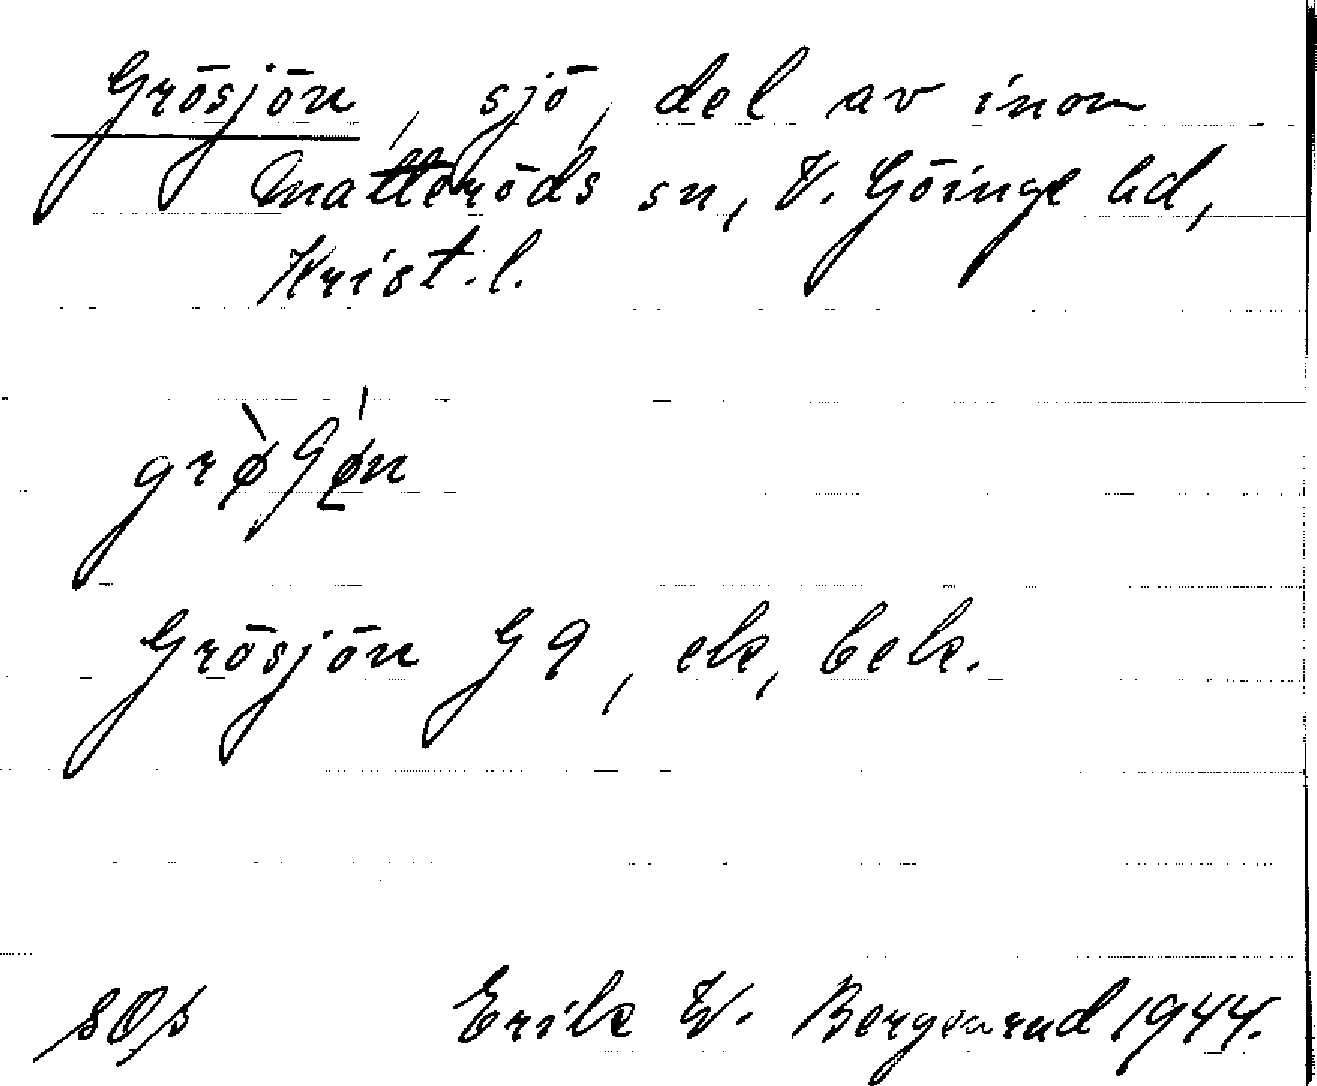 Grösjön, sjö, del av inom
Matteröds sn, V. Göinge hd,
Krist. l.
Grösjön G9, ek, bek.
Erik W. Bergenrud 1944.